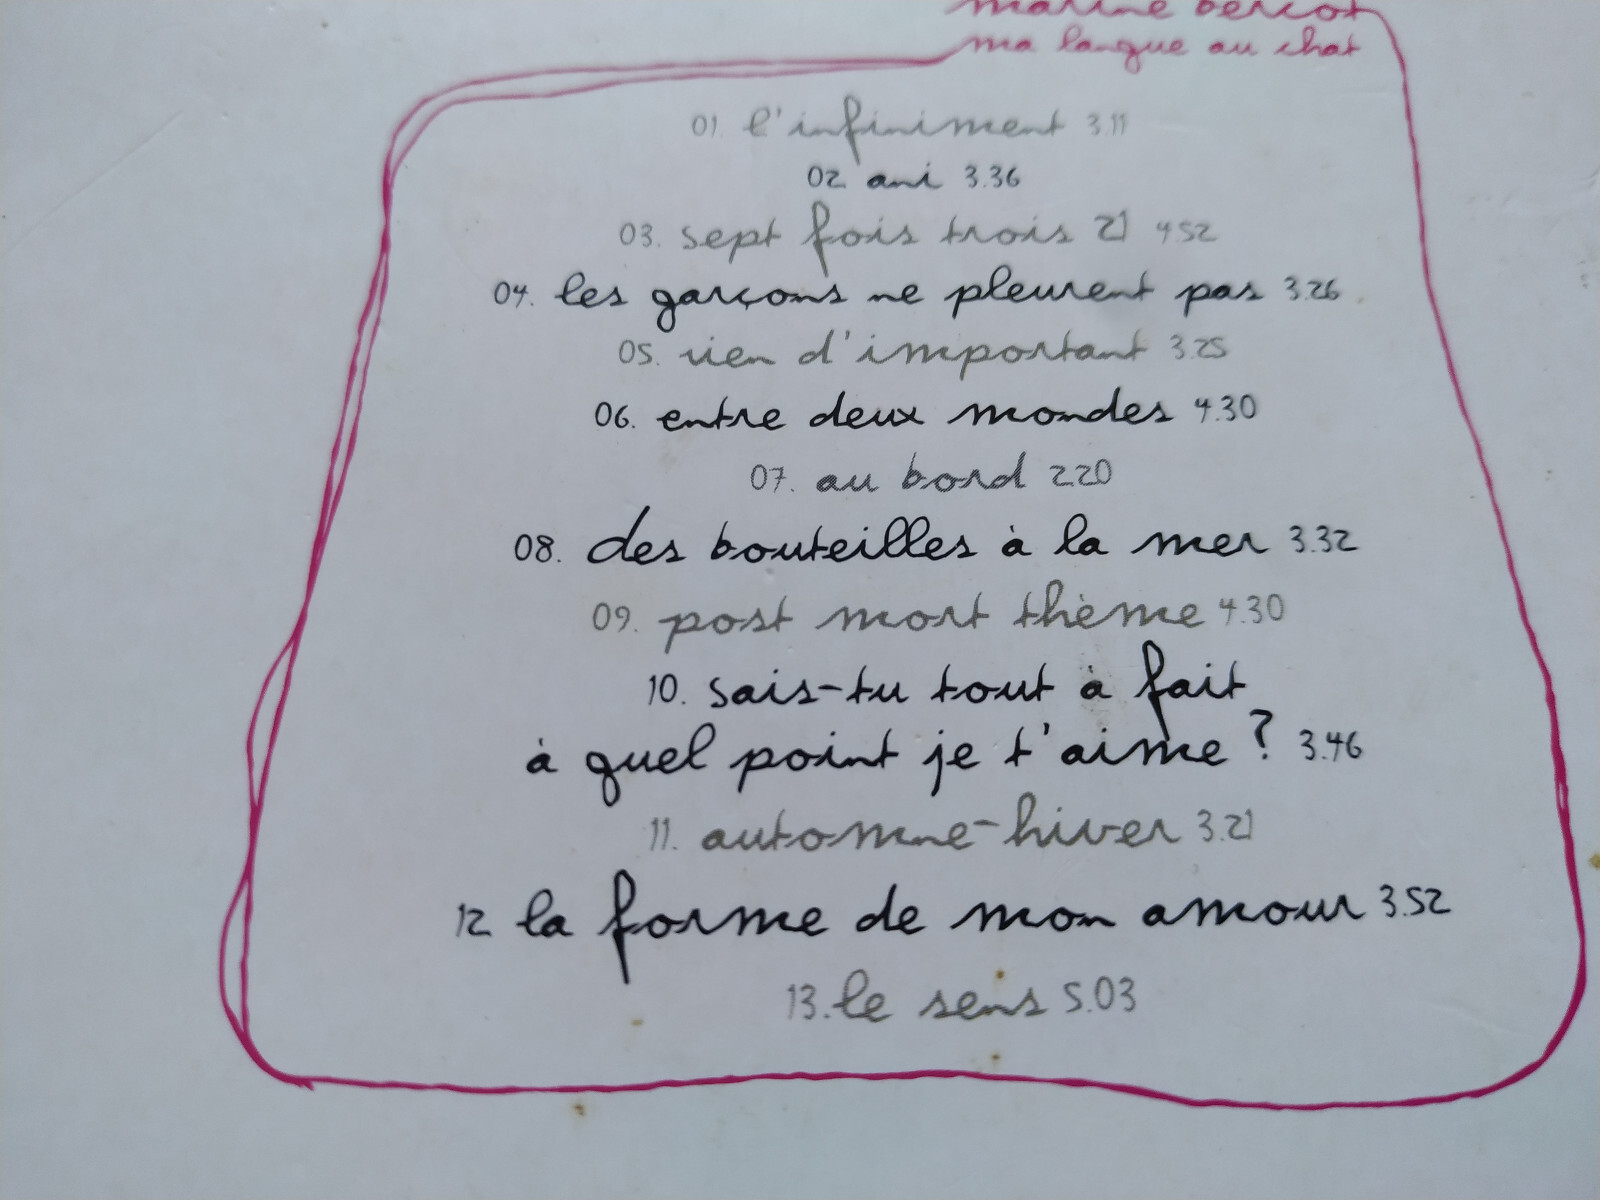 marine bercot
ma langue au chat
01. l'infiniment 3.11
02. ani 3.36
03. sept fois trois 21 4.52
04. les garçons ne pleurent pas 3.26
05. rien d'important 3.25
06. entre deux mondes 4.30
07. au bord 2.20
08. des bouteilles à la mer 3.32
09. post mort thème 4.30
10. sais-tu tout à fait
à quel point je t'aime ? 3.46
11. automne-hiver 3.21
12 la forme de mon amour 3.52
13. le sens 5.03